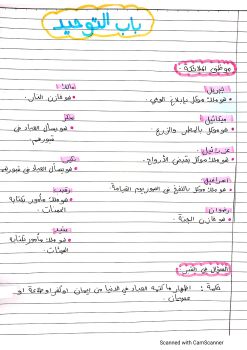 باب التوحيد
موظفي الملائكة.
جبريل:
هو ملك موكل بإبلاغ الوحي.
ميكائيل:
هو موكل بالمطر والزرع.
عزرائيل:
هو ملك موكل بقبض الأرواح.
إسرافيل:
هو ملك موكل بالنفخ في الصور يوم القيامة.
رضوان:
هو خازن الجنة.
مالك:
هو خازن النار.
منكر
هو يسأل العباد في
قبورهم.
نكير:
هو يسأل العباد في قبورهم
رقيب:
هو ملك مأمور بكتابة
الحسنات.
عتيد:
هو ملك مأمور بكتابة
السيئات.
السؤال في القبر:
إظهار ما كتبه العباد في الدنيا من إيمان أو كفر أو طاعة أو
عصيان.
Scanned with CamScanner